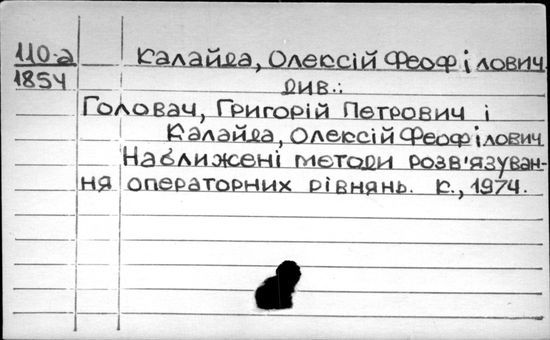 110-а
1854
Калайда, Олексій Феофілович
див.:
Головач, Григорій Петрович і
Калайда, Олексій Феофілович
Наближені методи розв'язуван-
ня операторних рівнянь. К., 1974.